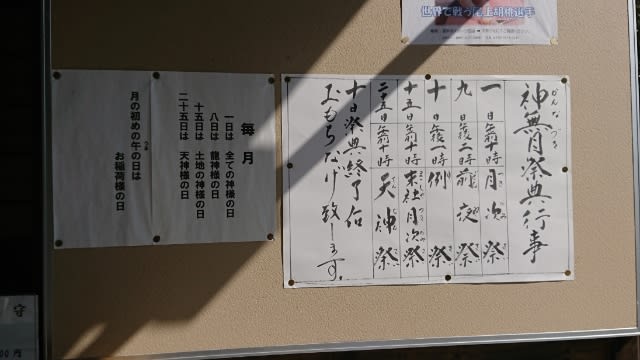 世界で戦う尾上胡桃選手
神無月祭典行事
かんなづき
一日 午前十時 月次祭
つきなみさい
九日 午後二時 前夜祭
十日 午後一時 例祭
十五日 午前十時 末社月次祭
二十五日 午前十時 天神祭
てんじんさい
十日祭典終了后
おもちなげ致します。
毎月
一日は 全ての神様の日
八日は 龍神様の日
十五日は 土地の神様の日
二十五日は 天神様の日
月の初めの午の日は
うま
お稲荷様の日
守
00円